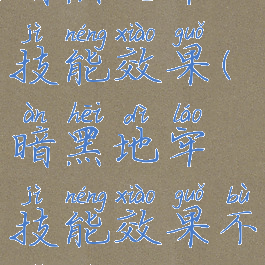 jì néng xiào guǒ
技能效果(
àn hēi dì láo
暗黑地牢
jì néng xiào guǒ bù
技能效果不